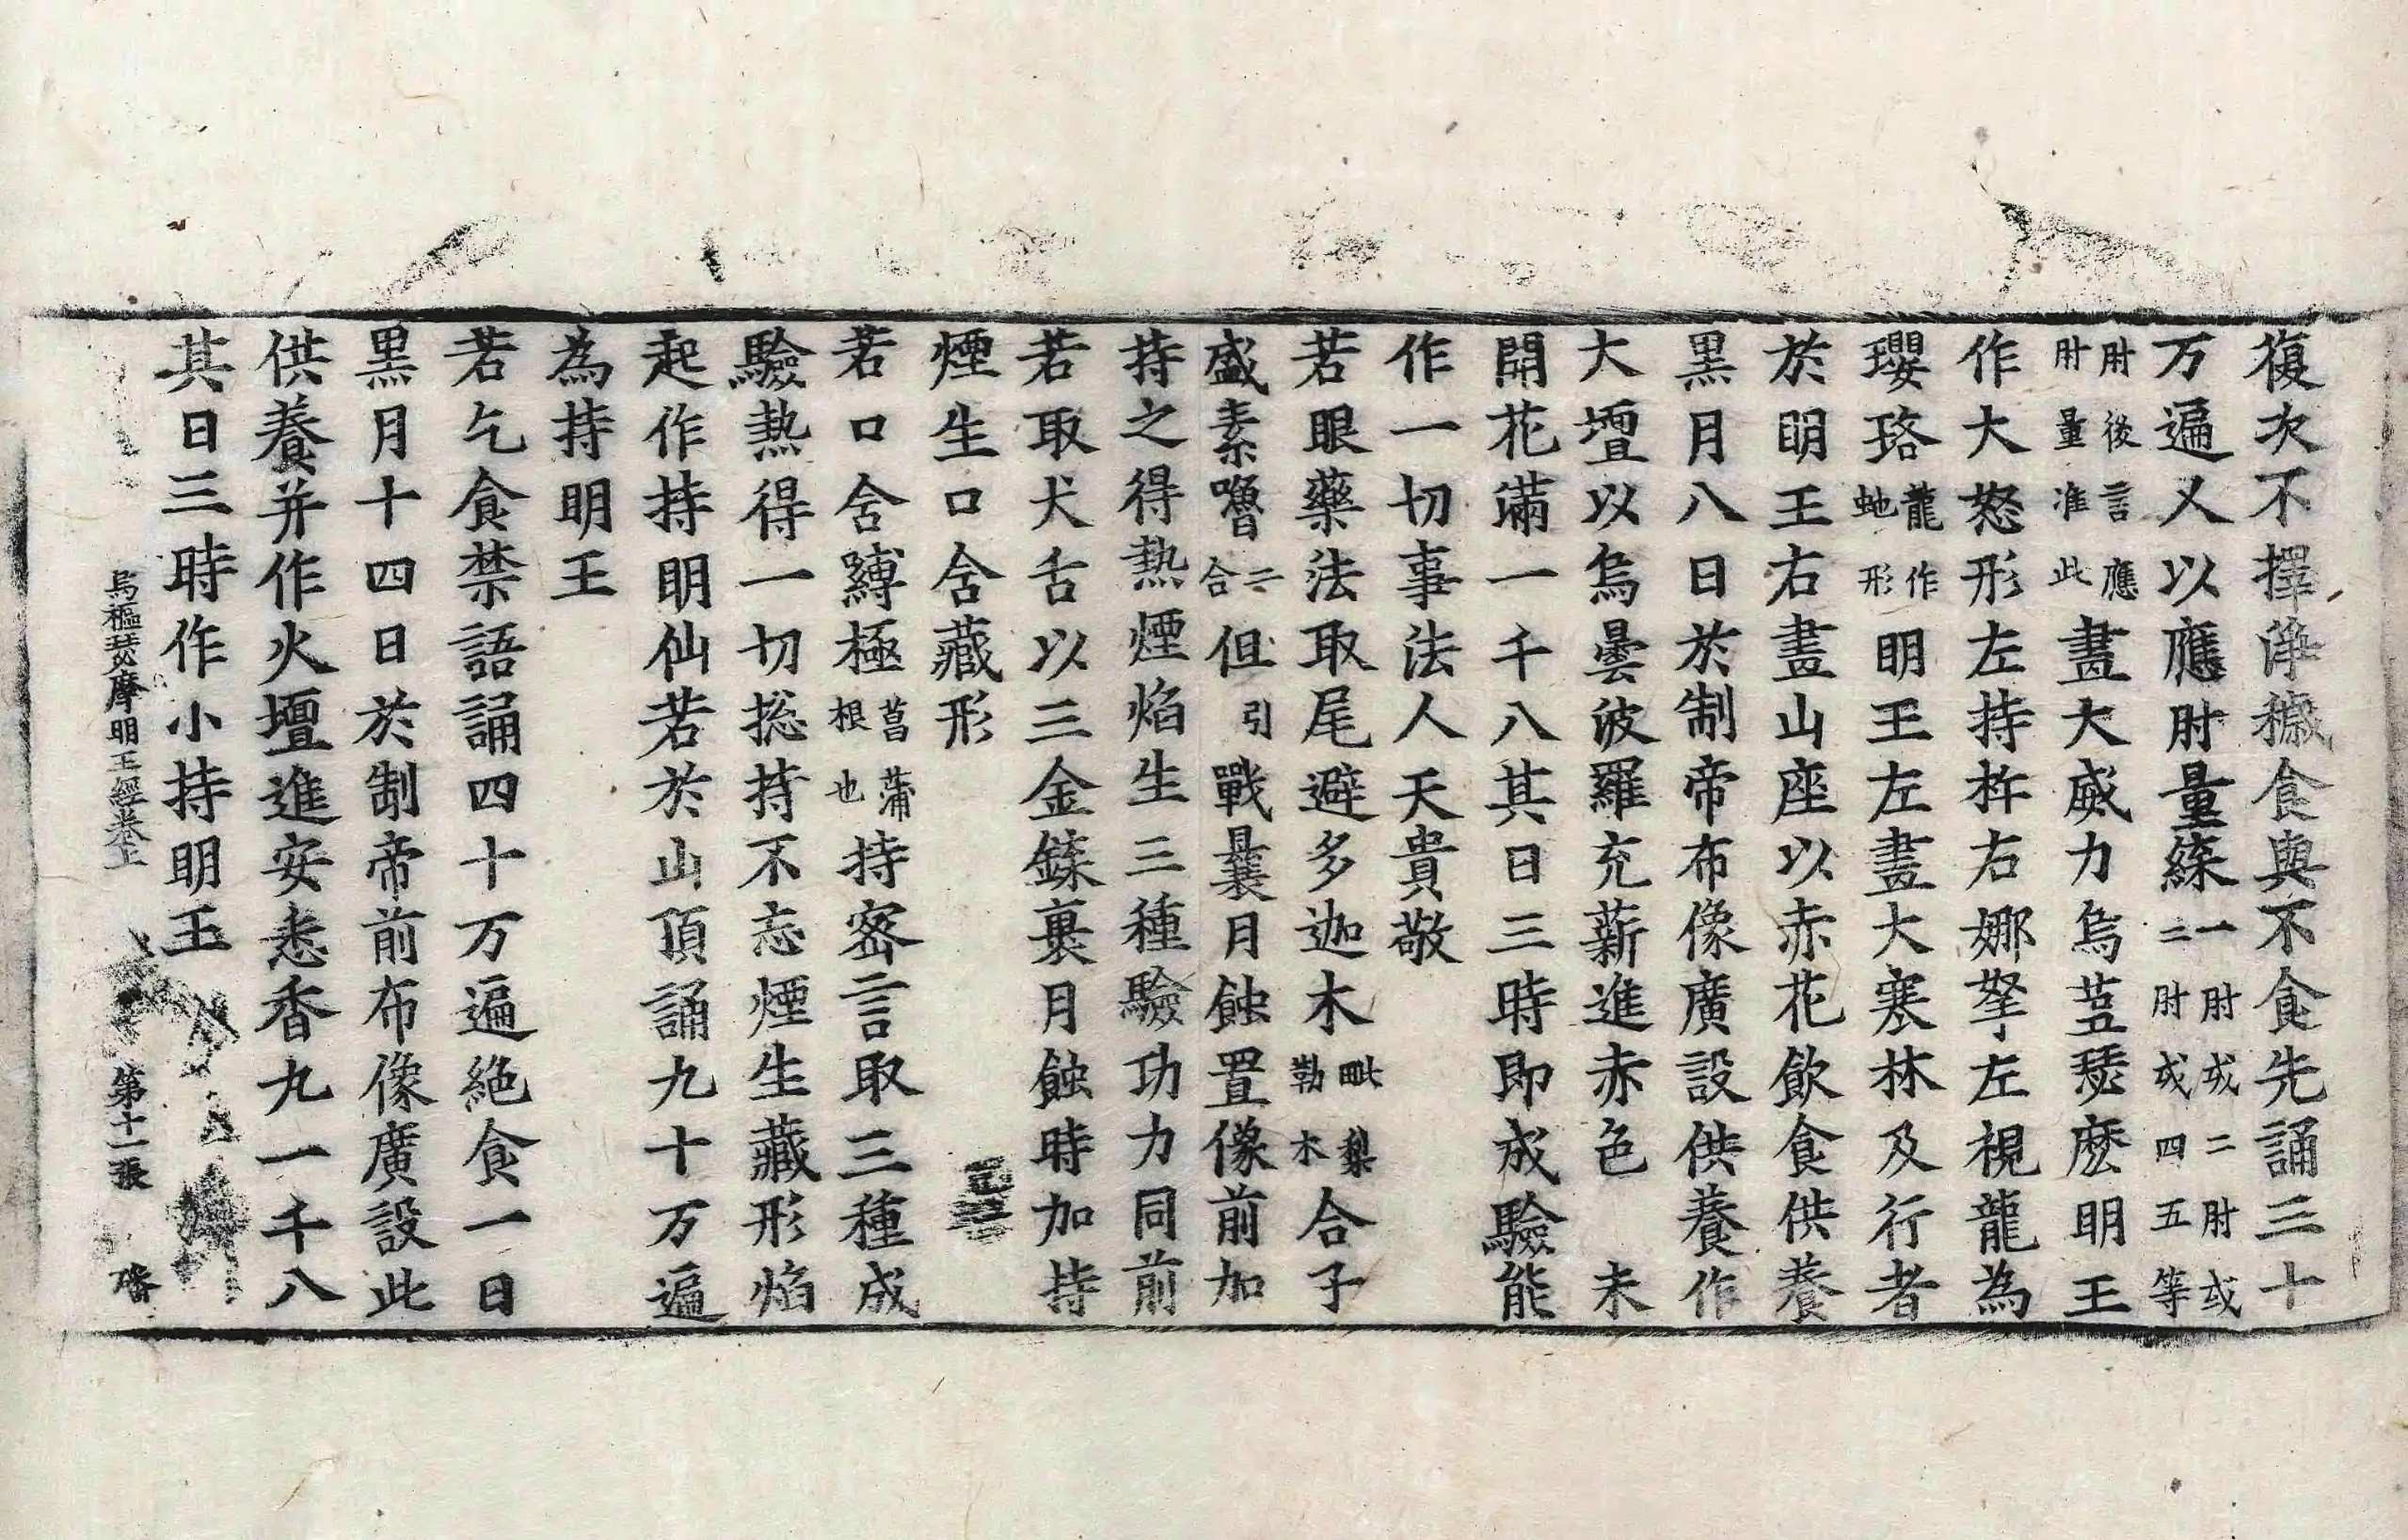 復次不擇淨穢食與不食先誦三十
万遍又以應肘量緤一肘或二肘或二肘或四五等
肘後言應肘量准此畫大威力烏蒭瑟麽明王
作大怒形左持杵右娜拏左視龍為
瓔珞龍作虵形明王左畫大寒林及行者
於明王右畫山座以赤花飲食供養
黑月八日於制帝布像廣設供養作
大壇以烏曇波羅充薪進赤色 未
開花滿一千八其日三時即成驗能
作一切事法人天貴敬
若眼藥法取尾避多迦木毗梨勒木合子
盛素嚕二合但引戰曩月蝕置像前加
持之得熱煙焰生三種驗功力同前
若取犬舌以三金鏁裹月蝕時加持
煙生口含藏形
若口含縛極菖蒲根也持密言取三種成
驗熱得一切捴持不忘煙生藏形焰
起作持明仙若於山頂誦九十万遍
為持明王
若乞食禁語誦四十万遍絕食一日
黑月十四日於制帝前布像廣設此
供養并作火壇進安悉香丸一千八
其日三時作小持明王
烏樞瑟摩明王經卷上 第十一張